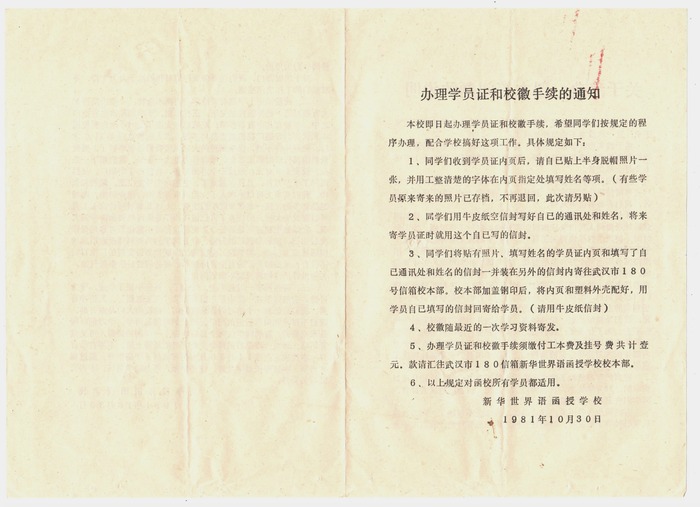 办理学员证和校徽手续的通知
本校即日起办理学员证和校徽手续，希望同学们按规定的程
序办理，配合学校搞好这项工作。具体规定如下：
1、同学们收到学员证内页后，请自己贴上半身脱帽照片一
张，并用工整清楚的字体在内页指定处填写姓名等项。（有些学
员原来寄来的照片已存档，不再退回，此次请另贴）
2、同学们用牛皮纸空信封写好自己的通讯处和姓名，将来
寄学员证时就用这个自己写的信封。
3、同学们将贴有照片、填写姓名的学员证内页和填写了自
己通讯处和姓名的信封一并装在另外的信封内寄往武汉市180
号信箱校本部。校本部加盖钢印后，将内页和塑料外壳配好，用
学员自己填写的信封回寄给学员。（请用牛皮纸信封）
4、校徽随最近的一次学习资料寄发。
5、办理学员证和校徽手续须缴付工本费及挂号费共计壹
元。款请汇往武汉市180信箱新华世界语函授学校校本部。
6、以上规定对函校所有学员都适用。
新华世界语函授学校
1981年10月30日